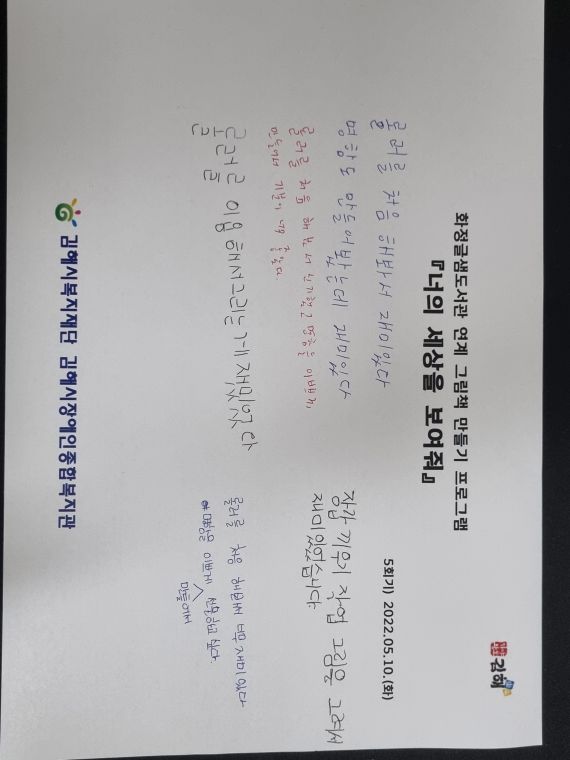 김해
화정글샘도서관 연계 그림책 만들기 프로그램
『너의 세상을 보여줘』
5회기) 2022.05.10.(화)
롤러를 처음 해봐서 재미있다
명함도 만들어봤는데 재미있다
롤러를 처음 해보서 신기했고 명함을 이쁘게
만들어서 기분이 너무 좋았다.
롤러로 이용해서그리는게재밌었다
장갑 끼우기 작업 그림을 그려서
재미있었습니다
롤러를 처음 해봐서 너무 재미있다
명함을 이쁘게 만들어서 선물하고 싶다.
김해시복지재단 김해시장애인종합복지관